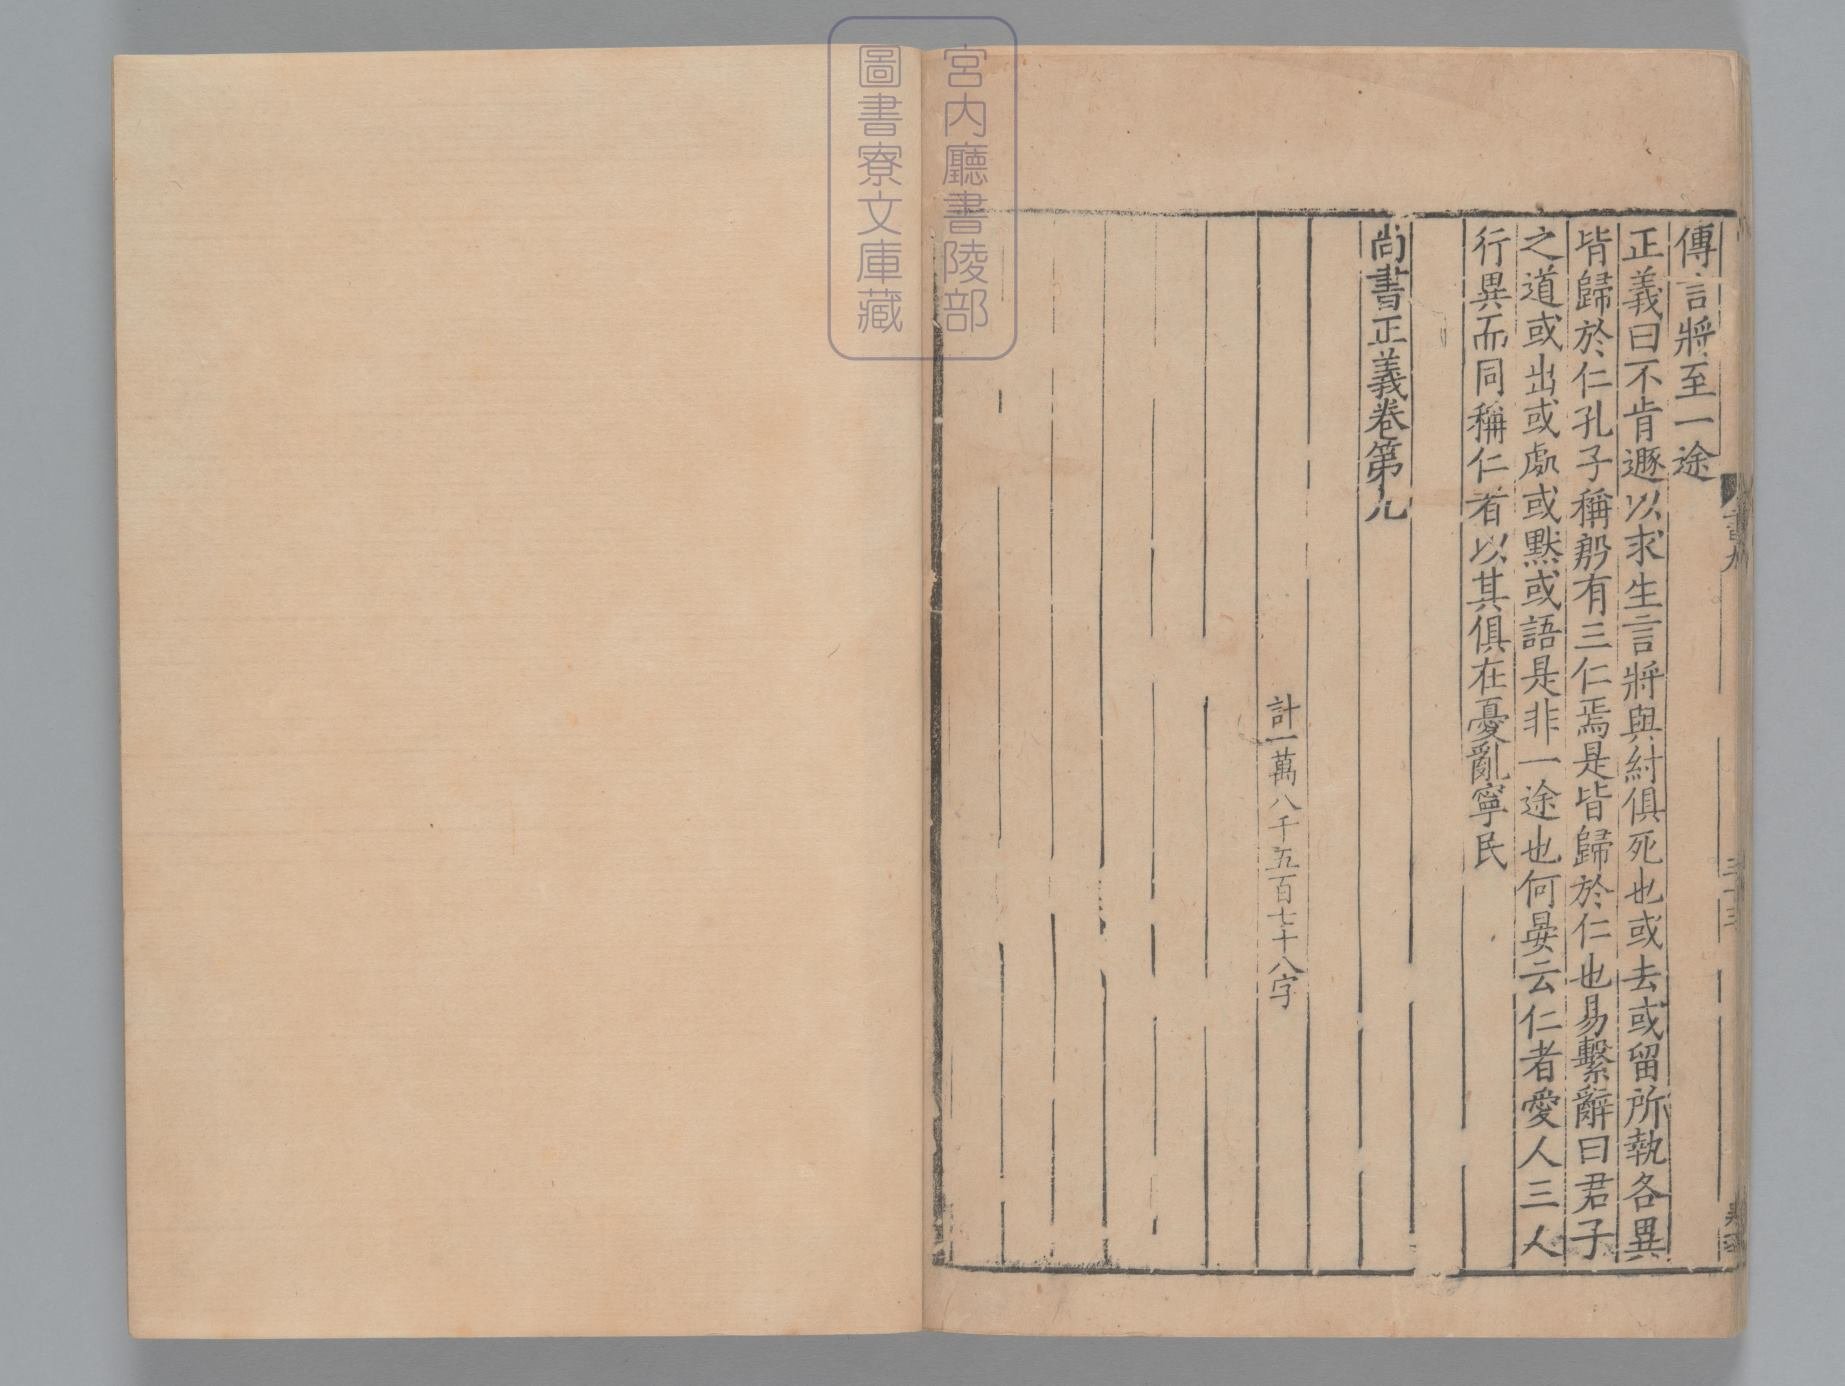 傳言將至一途
正義曰不肯遯以求生言將與紂俱死也或去或留所執各異
皆歸於仁孔子稱殷有三仁焉是皆歸於仁也易繫辭曰君子
之道或出或處或默或語是非一途也何晏云仁者愛人三人
行異而同稱仁者以其俱在憂亂寧民
尚書正義卷第九
計一萬八千五百七十八字
宮内廳書陵部
圖書寮文庫藏